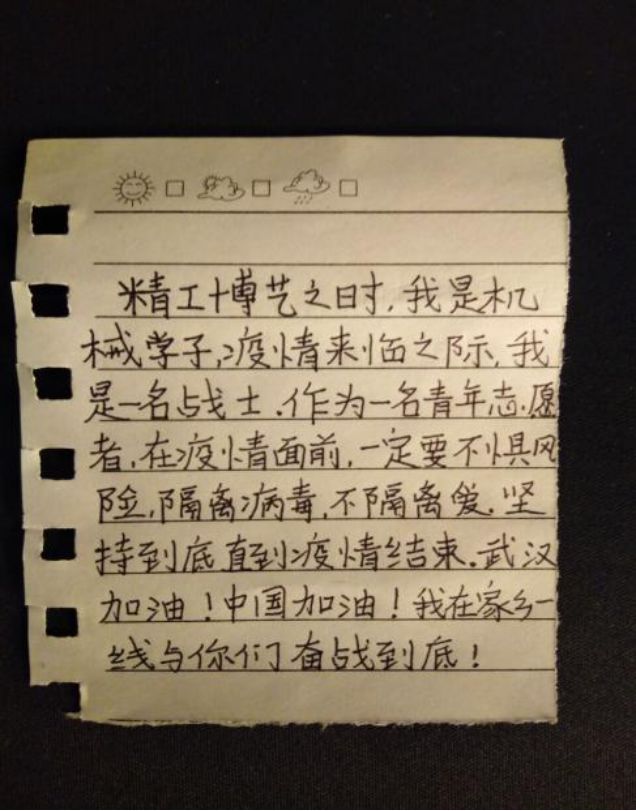 精工博艺之时,我是机
械学子,疫情来临之际,我
是一名战士.作为一名青年志愿
者,在疫情面前,一定要不惧风
险,隔离病毒,不隔离爱.坚
持到底直到疫情结束.武汉
加油!中国加油!我在家乡一
线与你们奋战到底!